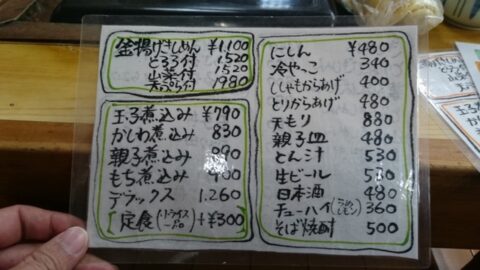 釜揚げきしめん ¥1,100
とろろ付 1520
山菜付 1520
天ぷら付 1980
玉子煮込み ¥790
かしわ煮込み 830
親子煮込み 890
もち煮込み
デラックス 1.260
定食(+ライス 一品) +¥300
にしん ¥480
冷やっこ 340
ししゃもからあげ 400
とりからあげ 480
天もり 880
親子皿 480
とん汁 530
生ビール 530
日本酒 480
チューハイ(うめ レモン) 360
そば焼酎 500